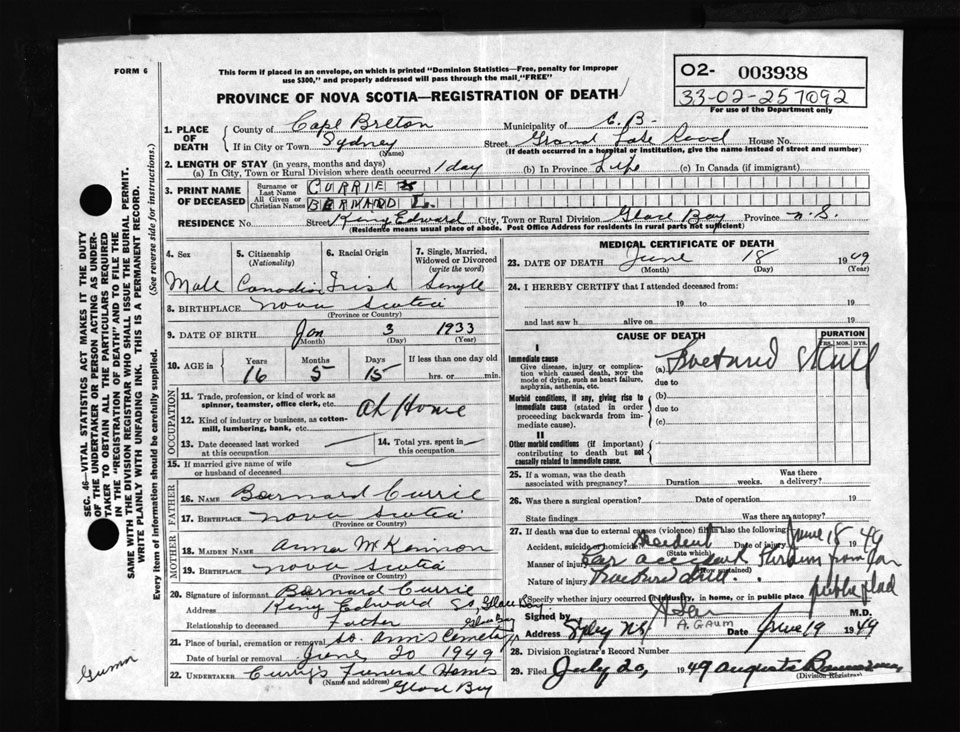 FORM 6
This form if placed in an envelope, on which is printed "Dominion Statistics—Free, penalty for improper
use $300," and properly addressed will pass through the mail "FREE"
O2- 003938
33-02-257092
For use of the Department only
PROVINCE OF NOVA SCOTIA—REGISTRATION OF DEATH
1. PLACE OF DEATH
County of Cape Breton Municipality of C.B.
If in City or Town Sydney (Name) Street Grand Lake Road House No.
(If death occurred in a hospital or institution, give the name instead of street and number)
2. LENGTH OF STAY (in years, months and days)
(a) In City, Town or Rural Division where death occurred 1 day (b) In Province Life (c) In Canada (if immigrant)
3. PRINT NAME OF DECEASED
Surname or Last Name CURRIE
All Given or Christian Names BERNARD L.
RESIDENCE No. Street King Edward City, Town or Rural Division Glace Bay Province N.S.
(Residence means usual place of abode. Post Office Address for residents in rural parts not sufficient)
4. Sex Male
5. Citizenship (Nationality) Canadian
6. Racial Origin Irish
7. Single, Married, Widowed or Divorced (write the word) Single
8. BIRTHPLACE Nova Scotia
(Province or Country)
9. DATE OF BIRTH Jan 3 1933
(Month) (Day) (Year)
10. AGE in Years 16 Months 5 Days 15 If less than one day old hrs. or min.
OCCUPATION
11. Trade, profession, or kind of work as spinner, teamster, office clerk, etc.
At Home
12. Kind of industry or business, as cotton-mill, lumbering, bank, etc.
13. Date deceased last worked at this occupation
14. Total yrs. spent in this occupation
15. If married give name of wife or husband of deceased
FATHER
16. NAME Bernard Currie
17. BIRTHPLACE Nova Scotia
(Province or Country)
MOTHER
18. MAIDEN NAME Anna McKinnon
19. BIRTHPLACE Nova Scotia
(Province or Country)
20. Signature of informant Bernard Currie
Address King Edward St, Glace Bay
Relationship to deceased Father
21. Place of burial, cremation or removal St. Anns Cemetery Glace Bay
Date of burial or removal June 20 1949
22. UNDERTAKER Curry's Funeral Home
(Name and address)
Glace Bay
MEDICAL CERTIFICATE OF DEATH
23. DATE OF DEATH June 18 1949
(Month) (Day) (Year)
24. I HEREBY CERTIFY that I attended deceased from:
19 to 19
and last saw h alive on 19
CAUSE OF DEATH
DURATION
YRS. MOS. DYS.
I
Immediate cause
Give disease, injury or complication which caused death, NOT the mode of dying, such as heart failure, asphyxia, asthenia, etc.
(a) Fractured Skull
due to
Morbid conditions, if any, giving rise to immediate cause (stated in order proceeding backwards from immediate cause).
(b)
due to
(c)
II
Other morbid conditions (if important) contributing to death but not causally related to immediate cause.
25. If a woman, was the death associated with pregnancy? Duration weeks. Was there a delivery?
26. Was there a surgical operation? Date of operation 19
State findings Was there an autopsy?
27. If death was due to external causes (violence) fill in also the following:
Accident, suicide or homicide? Accident Date of injury June 18 1949
(State which)
Manner of injury Car accident thrown from car
(How sustained)
Nature of injury Fractured skull.
Specify whether injury occurred in industry, in home, or in public place public place
Signed by M.D.
A. GAUM
Address Sydney N.S. Date June 19 1949
28. Division Registrar's Record Number
29. Filed July 20, 1949
(Division Registrar)
SEC. 46—VITAL STATISTICS ACT MAKES IT THE DUTY
OF THE UNDERTAKER OR PERSON ACTING AS UNDER-
TAKER TO OBTAIN ALL THE PARTICULARS REQUIRED
IN THE "REGISTRATION OF DEATH" AND TO FILE THE
SAME WITH THE DIVISION REGISTRAR WHO SHALL ISSUE THE BURIAL PERMIT.
WRITE PLAINLY WITH UNFADING INK. THIS IS A PERMANENT RECORD.
Every item of information should be carefully supplied. (See reverse side for instructions.)